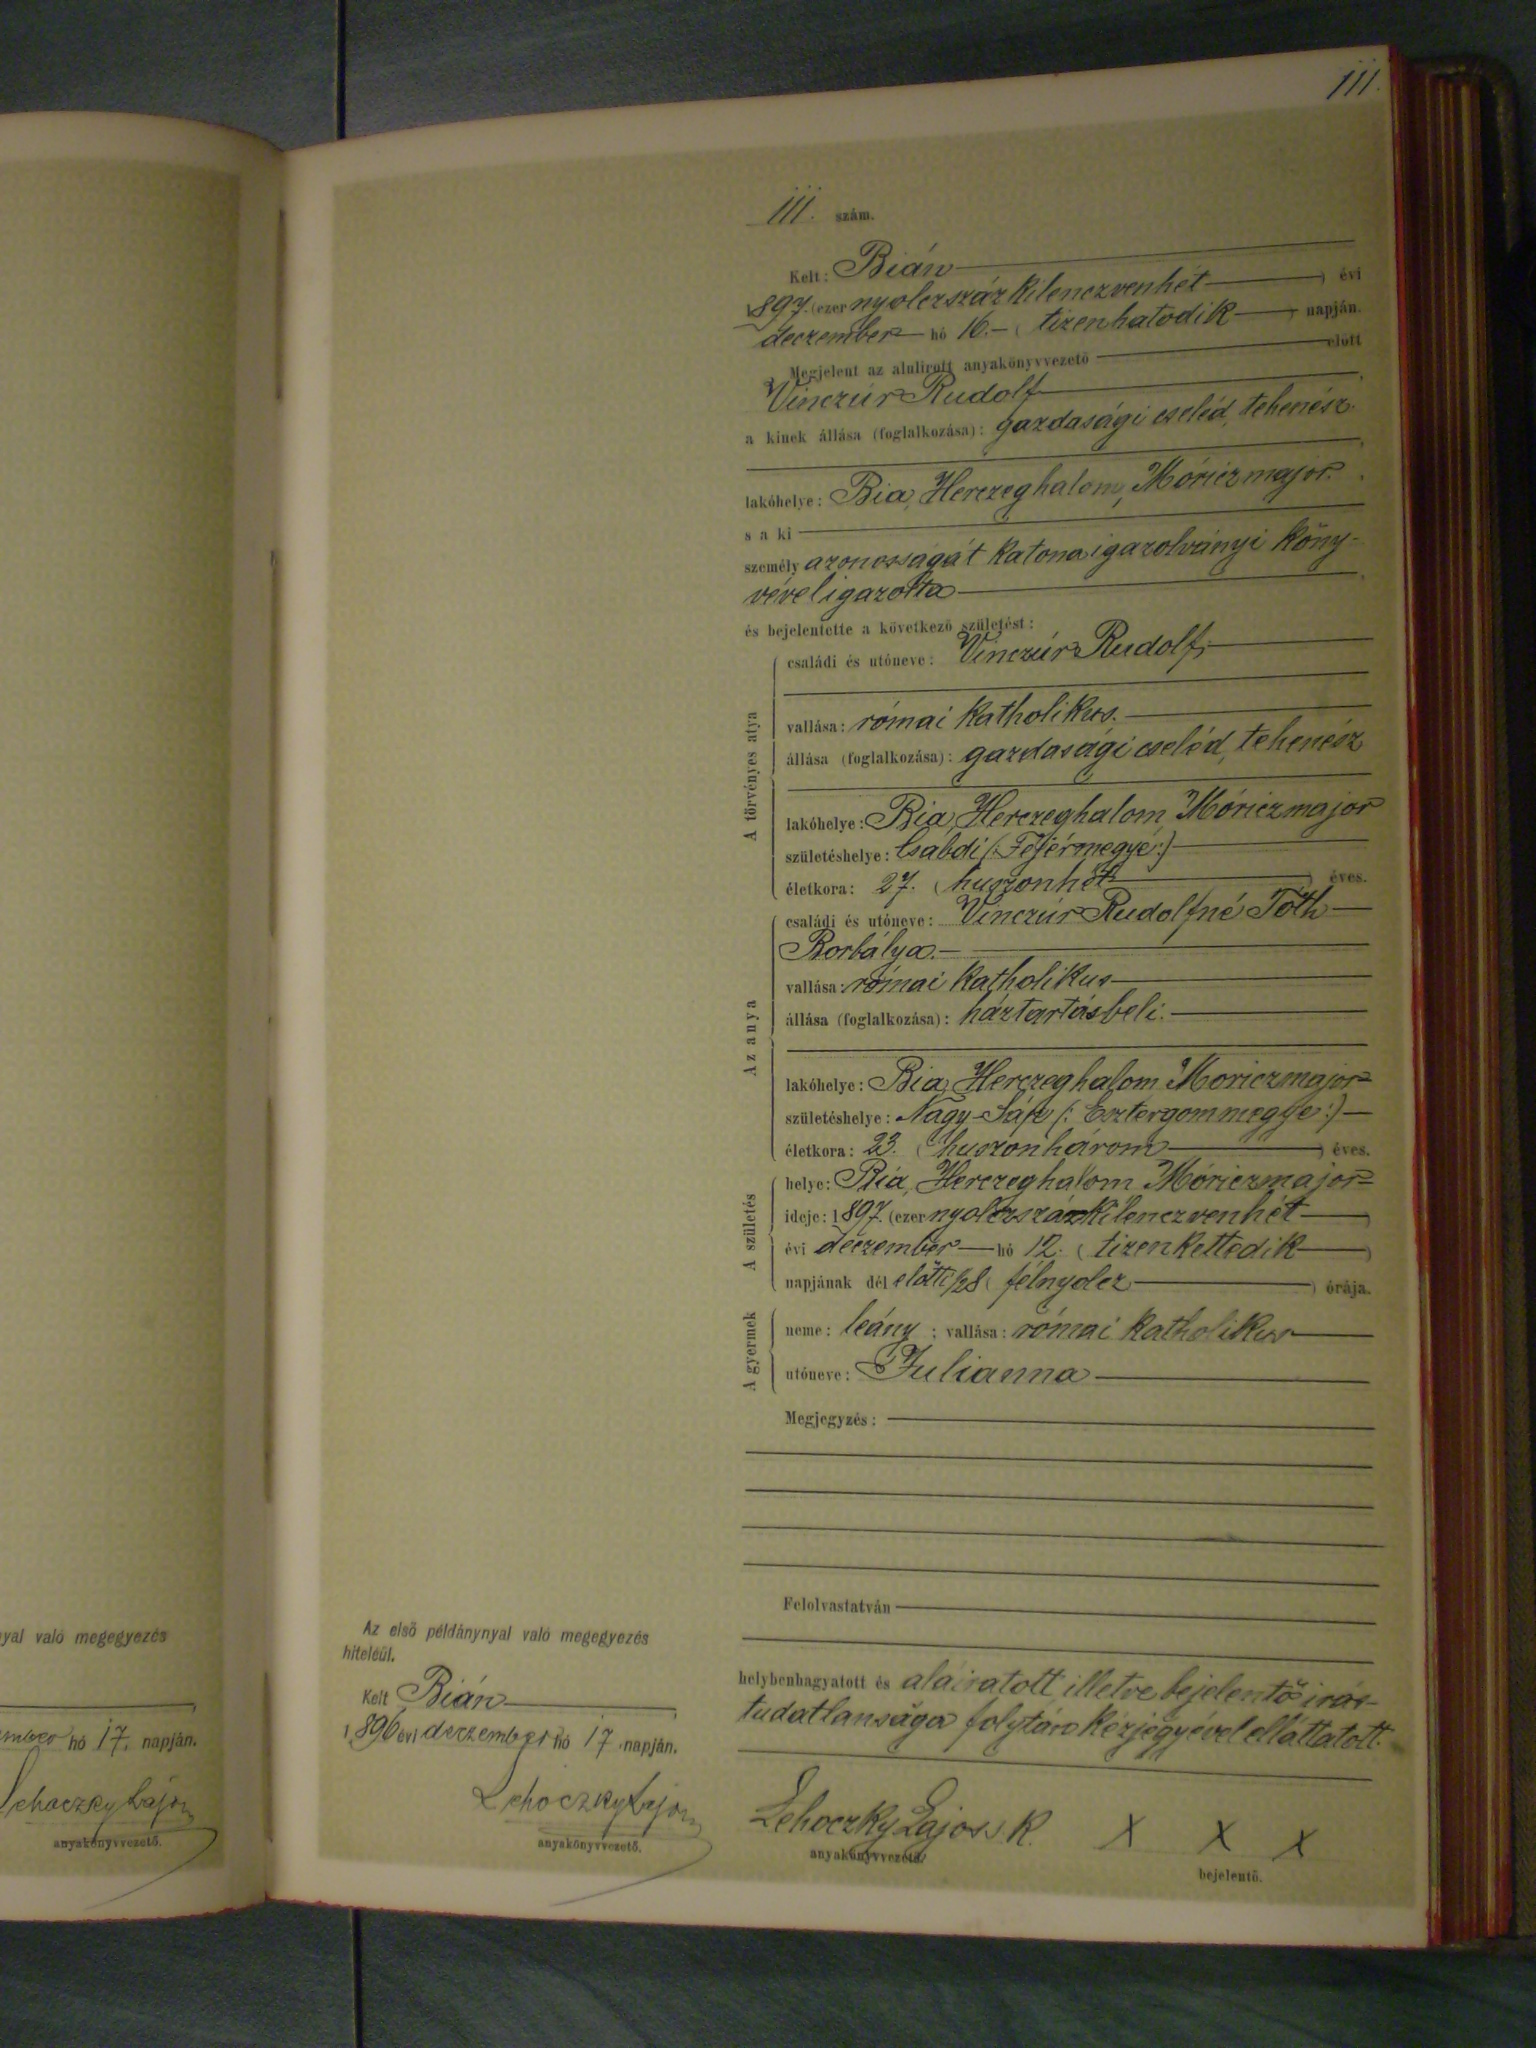 111.
111. szám.
Kelt: Bián
1897. (ezer nyolczszáz kilenczvenhét ) évi
deczember hó 16. ( tizenhatodik ) napján.
Megjelent az alulirott anyakönyvvezető előtt
Vinczúr Rudolf
a kinek állása (foglalkozása): gazdasági cseléd, tehenész.
lakóhelye: Bia, Herczeghalom, Móriczmajor.
s a ki
személyazonosságát katona igazolványi köny-
vével igazolta
és bejelentette a következő születést:
A törvényes atya
családi és utóneve: Vinczúr Rudolf,
vallása: római katholikus.
állása (foglalkozása): gazdasági cseléd, tehenész
lakóhelye: Bia, Herczeghalom Móriczmajor
születéshelye: Csabdi (: Fejérmegye:)
életkora: 27. ( huszonhét ) éves.
Az anya
családi és utóneve: Vinczúr Rudolfné Tóth
Borbálya.
vallása: római katholikus
állása (foglalkozása): háztartásbeli.
lakóhelye: Bia, Herczeghalom Moriczmajor
születéshelye: Nagy-Sáp (: Esztergommegye:)
életkora: 23. ( huszonhárom ) éves.
A születés
helye: Bia, Herczeghalom Móriczmajor
ideje: 1897. (ezer nyolczszázkilenczvenhét )
évi deczember hó 12. ( tizenkettedik )
napjának dél előtti ½8 ( félnyolcz ) órája.
A gyermek
neme: leány ; vallása: római katholikus
utóneve: Julianna
Megjegyzés:
Felolvastatván
helybenhagyatott és aláiratott, illetve bejelentő irás-
tudatlansága folytán kézjegyével elláttatott.
Lehoczky Lajos s. k. X X X
anyakönyvvezető. bejelentő.
Az első példánynyal való megegyezés
hiteléül.
Kelt Bián
1896 évi deczember hó 17 napján.
Lehoczky Lajos
anyakönyvvezető.
nyal való megegyezés
ember hó 17. napján.
Lehoczky Lajos
anyakönyvvezető.